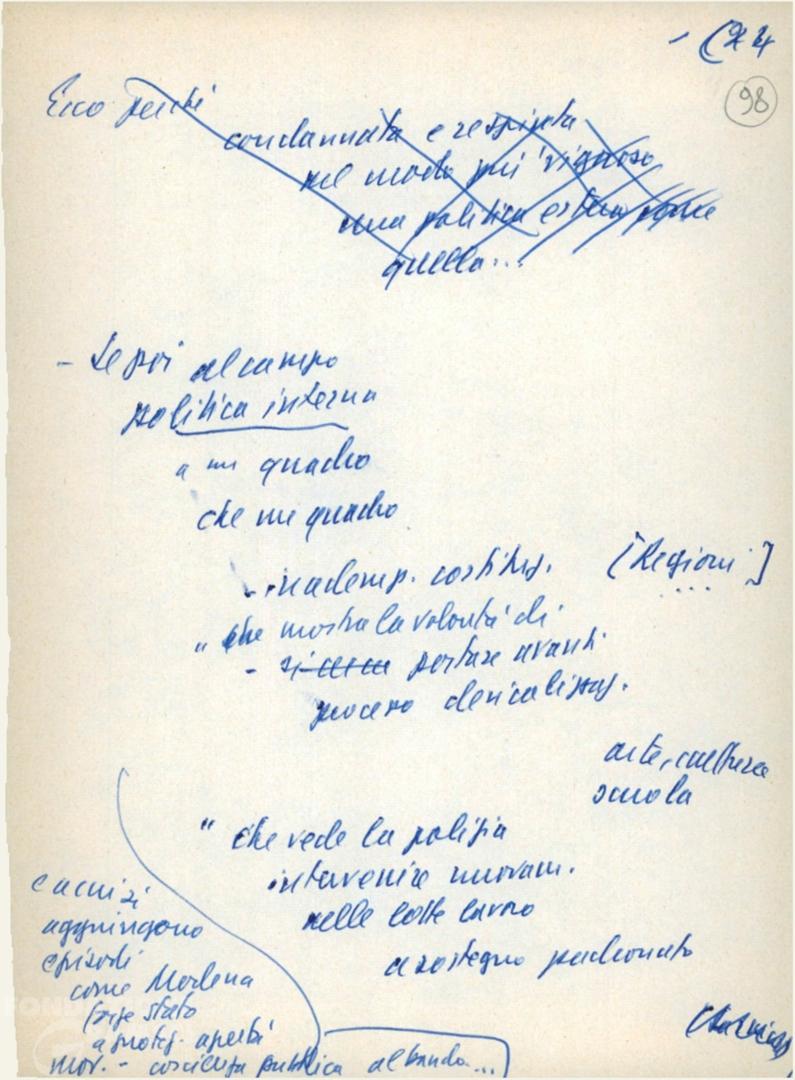 98
Ecco perché
condannata e respinta
nel modo più vigoroso
una politica estera come
quella...
- Se poi al campo
politica interna
a un quadro
che un quadro
- inademp. costituz. [Regioni]
" che mostra la volontà di
- portare avanti
processo clericalizzaz.
arte, cultura
scuola
" che vede la polizia
intervenire nuovam.
nelle lotte lavoro
a sostegno padronato
e a cui si
aggiungono
episodi
come Modena
forze stato
aperti
mov. - coscienza pubblica al bando...